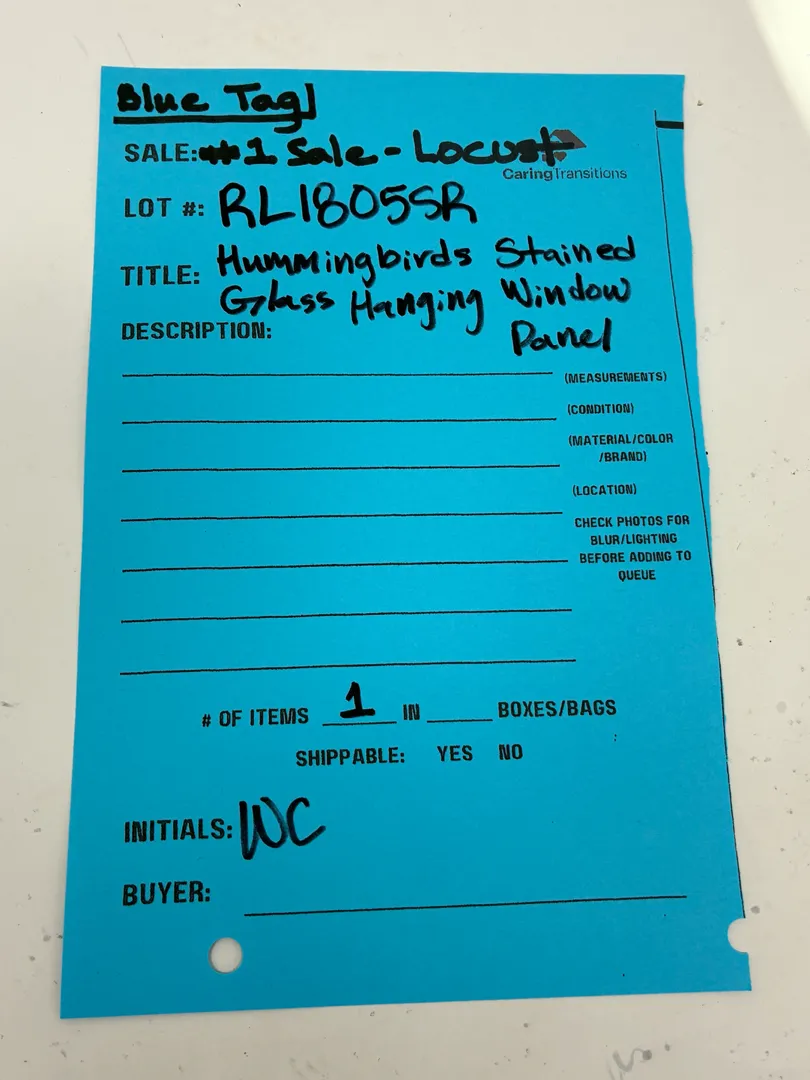 Blue Tag
SALE: #1 Sale - Locust
CaringTransitions
LOT #: RL1805SR
TITLE: Hummingbirds Stained
Glass Hanging Window
Panel
DESCRIPTION:
(MEASUREMENTS)
(CONDITION)
(MATERIAL/COLOR
/BRAND)
(LOCATION)
CHECK PHOTOS FOR
BLUR/LIGHTING
BEFORE ADDING TO
QUEUE
# OF ITEMS 1 IN ____ BOXES/BAGS
SHIPPABLE: YES NO
INITIALS: WC
BUYER: